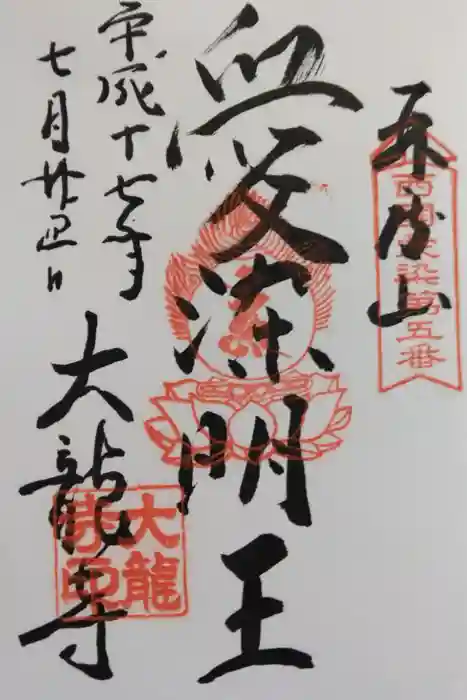 再度山
西國愛染第五番
愛染明王
平成十七年
七月廿四日
大龍寺
大龍